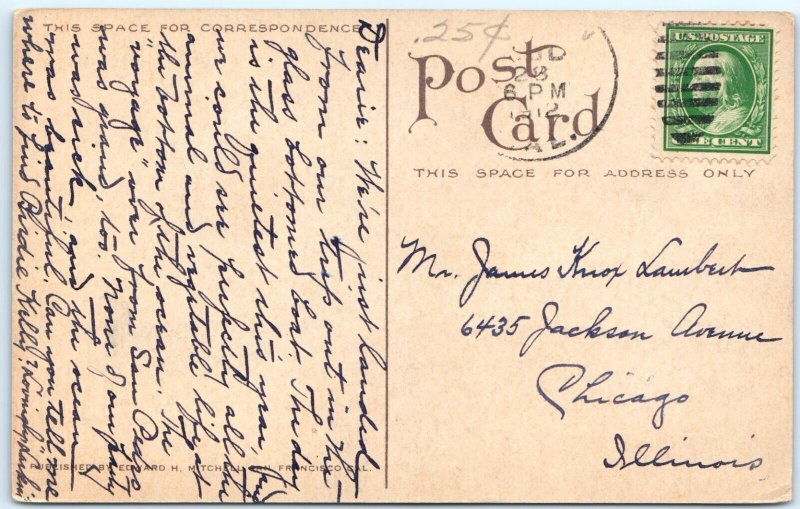 THIS SPACE FOR CORRESPONDENCE
Dearie: We're just landed
from our trip out in the
glass bottomed boat. The day
is the quietest this year, and
we could see perfectly all the
animal and vegetable life at
the bottom of the ocean. The
"voyage" over from San Pedro
was grand, too. None of our party
was sick, and the ocean
was beautiful. Can you tell me
where to find Birdie Kelly?
PUBLISHED BY EDWARD H. MITCHELL SAN FRANCISCO CAL.
.25¢
Post
Card
28
6 PM
1912
AL.
U.S. POSTAGE
ONE CENT
THIS SPACE FOR ADDRESS ONLY
Mr. James Knox Lambert
6435 Jackson Avenue
Chicago
Illinois